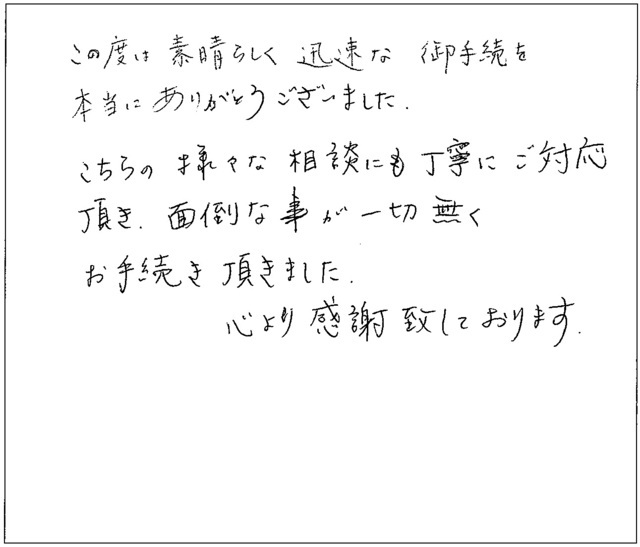 この度は素晴らしく迅速な御手続を
本当にありがとうございました.
こちらの様々な相談にも丁寧にご対応
頂き.面倒な事が一切無く
お手続き頂きました.
心より感謝致しております.